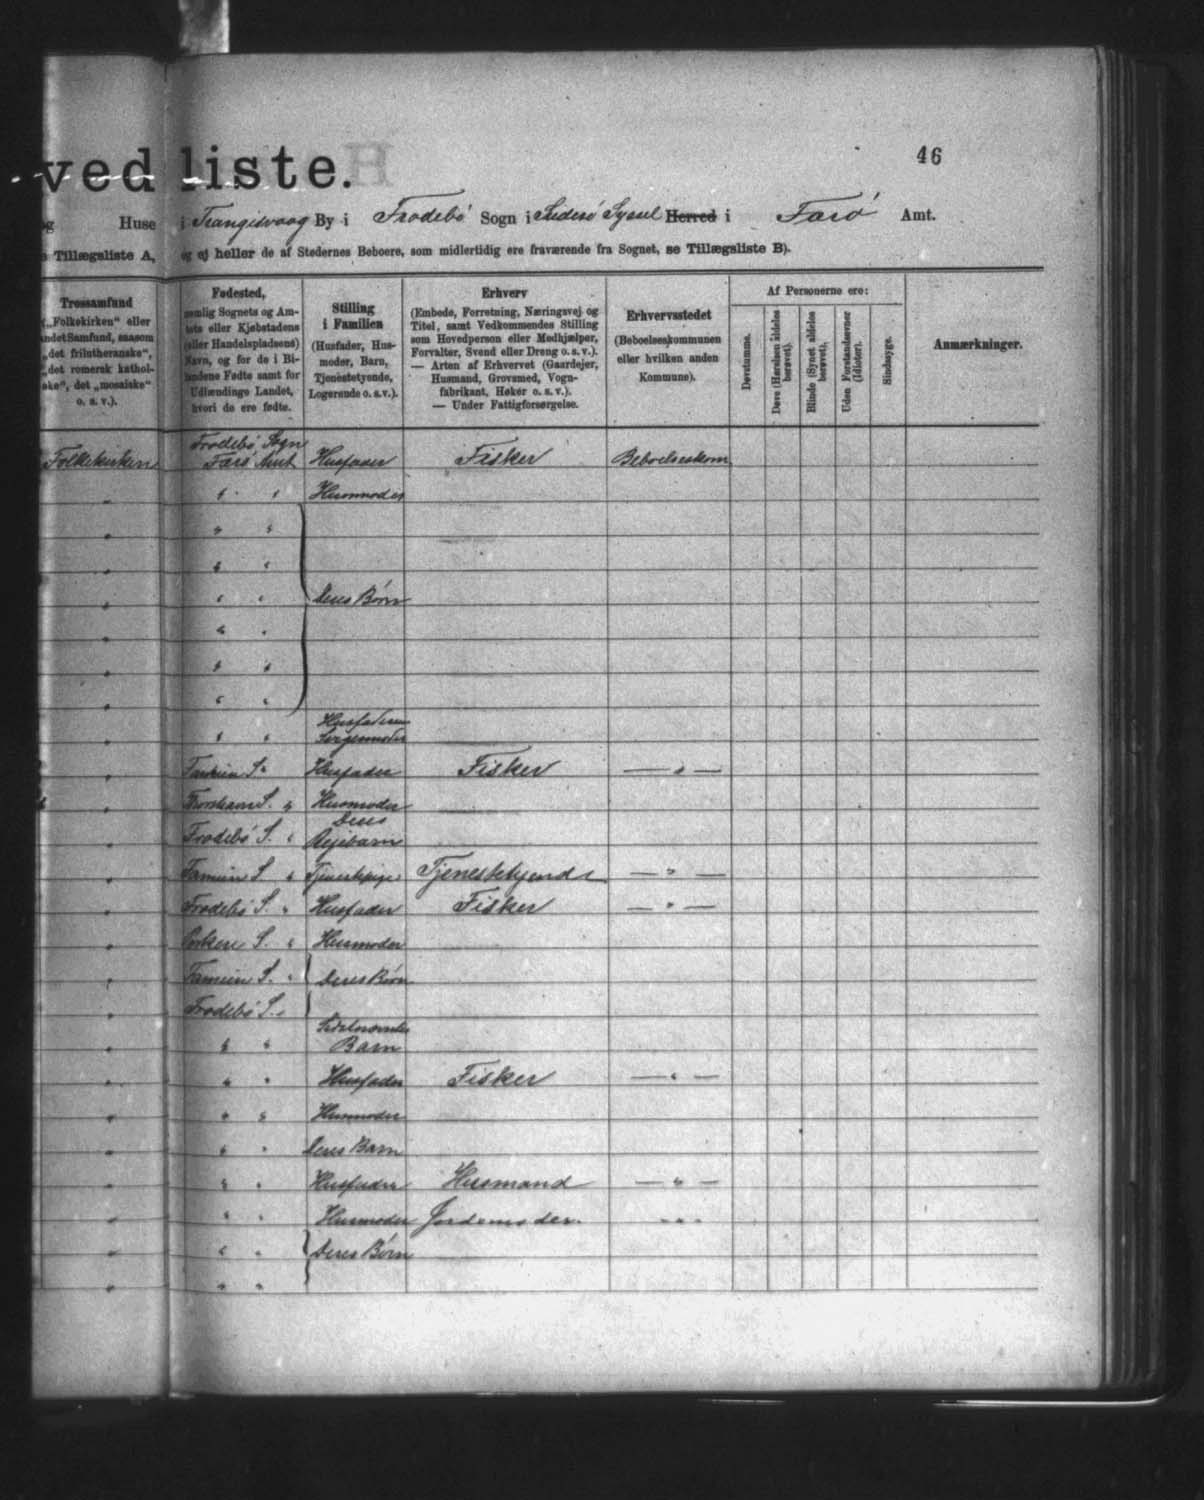 46
ved liste.
og Huse i Trangisvaag By i Frodebö Sogn i Suderö Syssel Herred i Færö Amt.
Tillægsliste A, og ej heller de af Stedernes Beboere, som midlertidig ere fraværende fra Sognet, se Tillægsliste B).
Trossamfund
(„Folkekirken“ eller
andet Samfund, saasom
„det frilutheranske“,
„det romersk kathol-
ske“, det „mosaiske“
o. s. v.).
Fødested,
nemlig Sognets og Am-
tets eller Kjøbstadens
(eller Handelspladsens)
Navn, og for de i Bi-
landene Fødte samt for
Udlændinge Landet,
hvori de ere fødte.
Stilling
i Familien
(Husfader, Hus-
moder, Barn,
Tjenestetyende,
Logerende o. s. v.).
Erhverv
(Embede, Forretning, Næringsvej og
Titel, samt Vedkommendes Stilling
som Hovedperson eller Medhjælper,
Forvalter, Svend eller Dreng o. s. v.).
— Arten af Erhvervet (Gaardejer,
Husmand, Grovsmed, Vogn-
fabrikant, Høker o. s. v.).
— Under Fattigforsørgelse.
Erhvervsstedet
(Beboelseskommunen
eller hvilken anden
Kommune).
Af Personerne ere:
Døvstumme.
Døve (Hørelsen aldeles
berøvet).
Blinde (Synet aldeles
berøvet).
Uden Forstandsevner
(Idioter).
Sindssyge.
Anmærkninger.
Frodebö Sogn
Folkekirken Færö Amt Husfader Fisker Beboelseskom
" " " Husmoder
" " "
" " "
" " " Deres Börn
" " "
" " "
" " "
Husfaderens
" " " Svigermoder
" S. " Husfader Fisker — " —
" Thorshavn S. " Husmoder
Deres
" Frodebö S. " Plejebarn
" Famien S. " Tjenestepige Tjenestetyende — " —
" Frodebö S. " Husfader Fisker — " —
" Porkere S. " Husmoder
" Famien S. " Deres Börn
" Frodebö S. "
" " " Barn
" " " Husfader Fisker — " —
" " " Husmoder
" " " Deres Barn
" " " Husfader Husmand — " —
" " " Husmoder Jordemoder. " " "
" " " Deres Börn
" " "